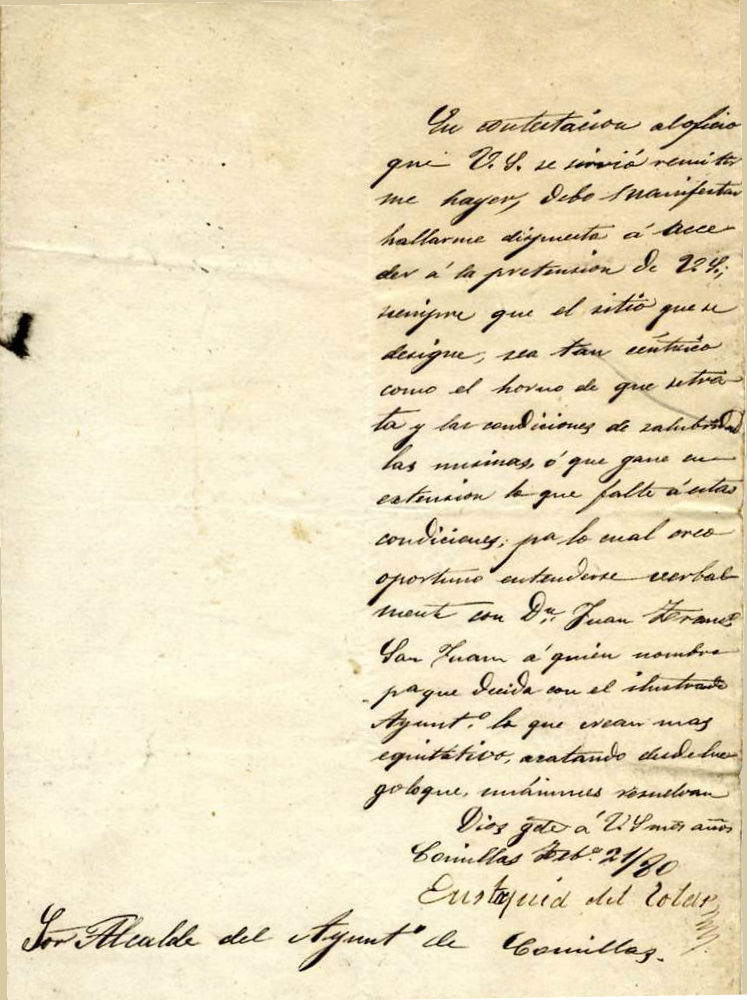 En contestacion al oficio
que V.S. se sirvió remitir
me hayer, debo manifestar
hallarme dispuesta á acce
der á la pretension de V.S.;
siempre que el sitio que se
designe, sea tan céntrico
como el horno de que setra
ta y las condiciones de salubridad
las mismas, ó que gane en
extension lo que falte á estas
condiciones; pa lo cual creo
oportuno entenderse verbal
mente con Dn. Juan Franco
San Juan á quien nombro
pa que decida con el ilustrado
Ayunto. lo que crean mas
equitativo, acatando desde lue
go loque, unánimes resuelvan
Dios gde á V.S mos años
Comillas Febo. 21/80
Eustaquia del
Sor Alcalde del Ayunto de Comillas.